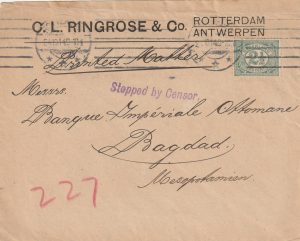 C. L. RINGROSE & Co.
ROTTERDAM
ANTWERPEN
Printed Matter
Stopped by Censor.
Messrs.
Banque Impériale Ottomane
Bagdad
Mesopotamien.
227